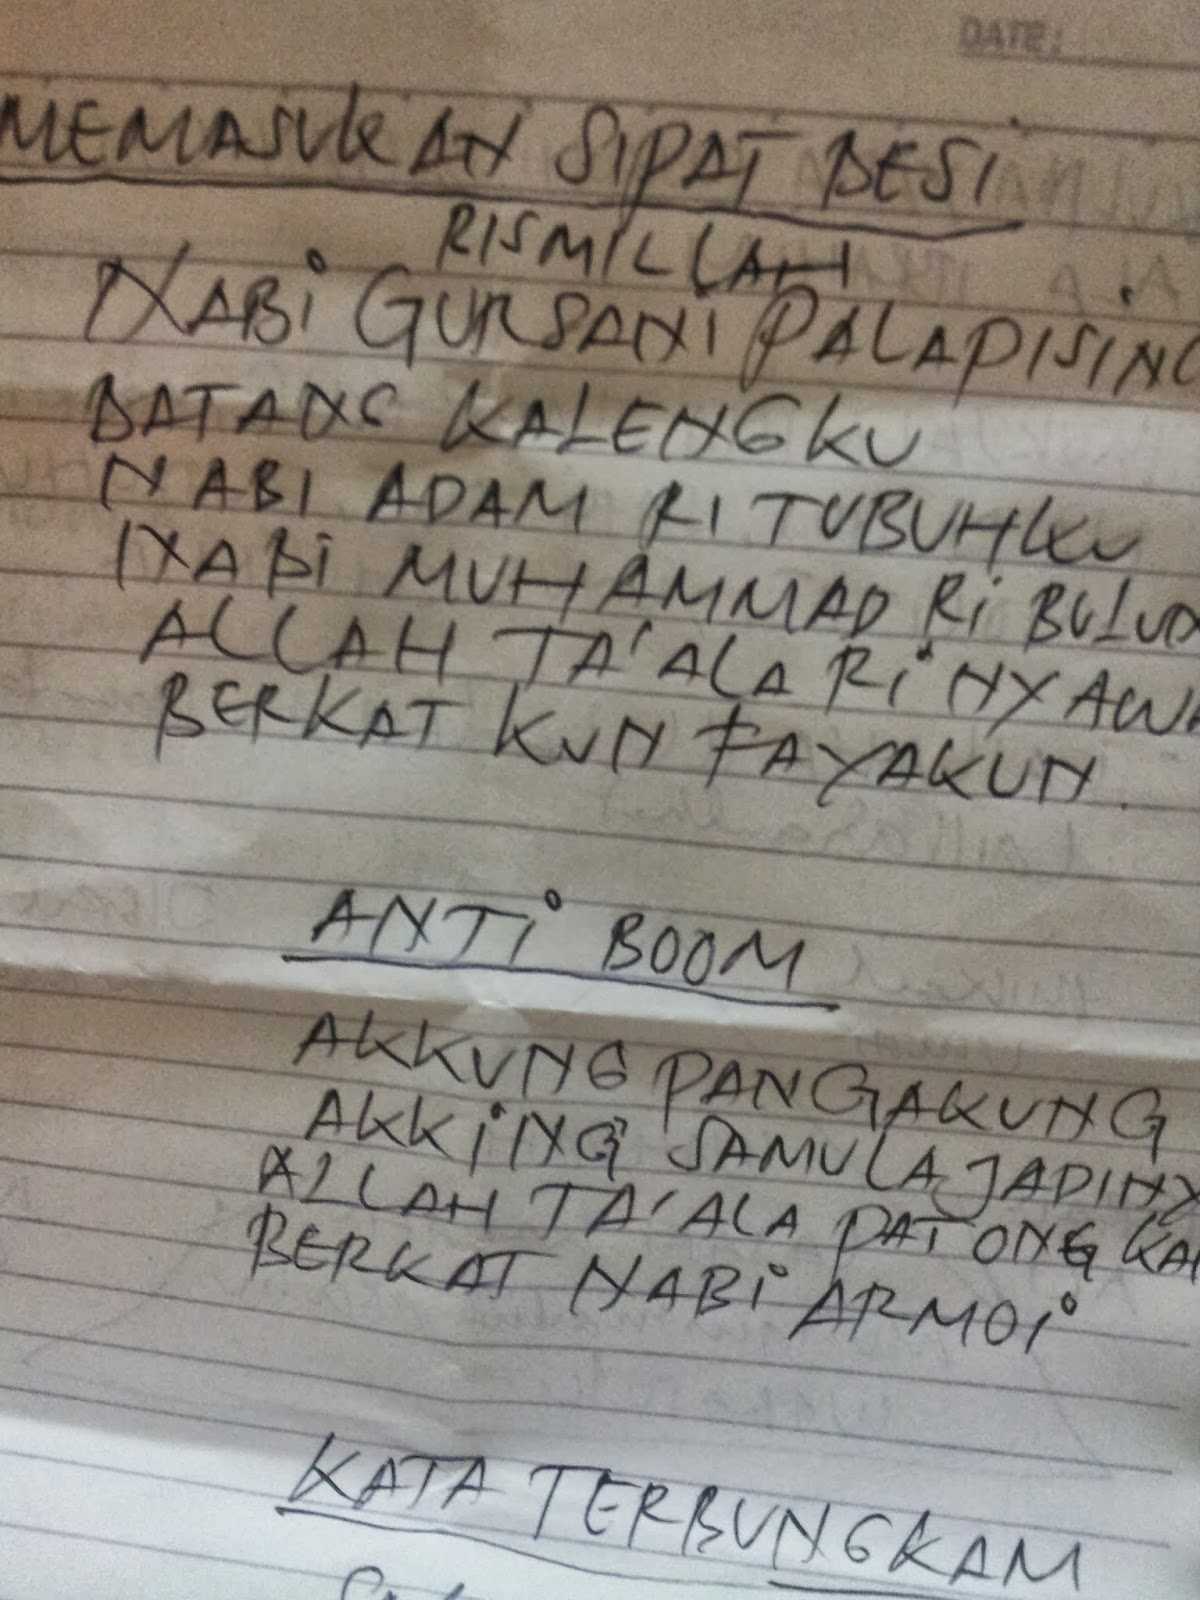 DATE:
MEMASUKAN SIPAT BESI
BISMILLAH
NABI GURSANI PALAPISING
BATANG KALENGKU
NABI ADAM RI TUBUHKU
NABI MUHAMMAD RI BULUA
ALLAH TA'ALA RI NYAWA
BERKAT KUN FAYAKUN.
ANTI BOOM
AKKUNG PANGAKUNG
AKKING SAMULAJADINY
ALLAH TA'ALA PATONGKA
BERKAT NABI ARMOI
KATA TERBUNGKAM